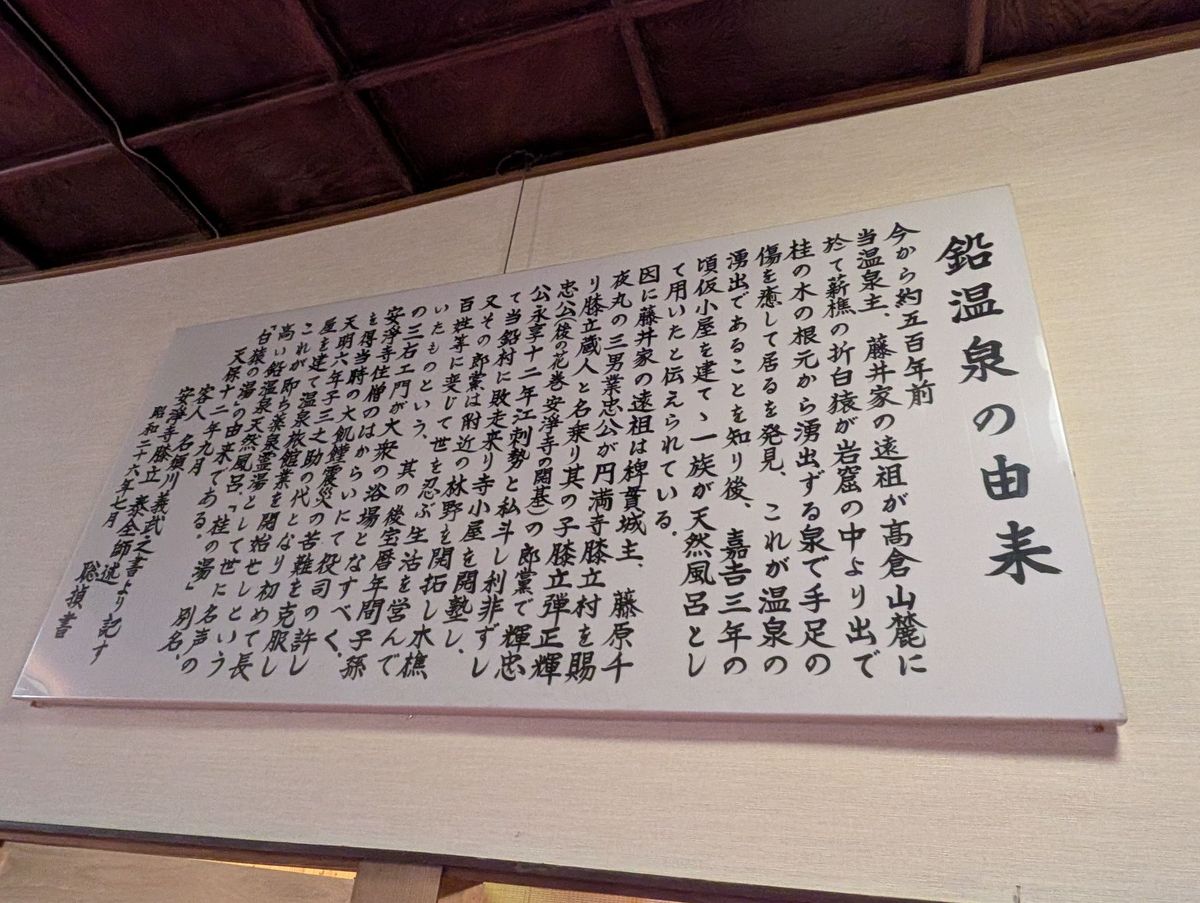 鉛温泉の由来
今から約五百年前
当温泉主、藤井家の遠祖が高倉山麓に
於て薪樵の折白猿が岩窟の中より出で
桂の木の根元から湧出ずる泉で手足の
傷を癒して居るを発見、これが温泉の
湧出であることを知り後、嘉吉三年の
頃仮小屋を建てゝ一族が天然風呂とし
て用いたと伝えられている。
因に藤井家の遠祖は稗貫城主、藤原千
夜丸の三男業忠公が円満寺膝立村を賜
り膝立蔵人と名乗り其の子膝立弾正輝
忠公(後の花巻安浄寺の開基)の郎黨で輝忠
公永享十二年江刺勢と私斗し利非ずし
て当鉛村に敗走来り寺小屋を開塾し、
又その郎黨は附近の林野を開拓し木樵
百姓等に変じて世を忍ぶ生活を営んで
いたものという、其の後宝暦年間子孫
の三右エ門が大衆の浴場となすべく、
安浄寺住僧のはからいにて役司の許し
を得当時の大飢饉震災の苦難を克服し
天明六年子三之助の代となり初めて長
屋を建て温泉旅館業を開始せしという
これが即ち薬泉霊湯として世に名声の
高い鉛温泉天然風呂「桂の湯」別名、
「白猿の湯」の由来である。
天保十二年九月
客人 名須川義武之書より記す
安浄寺膝立 泰全師 述
昭和二十六年七月 聡禎書